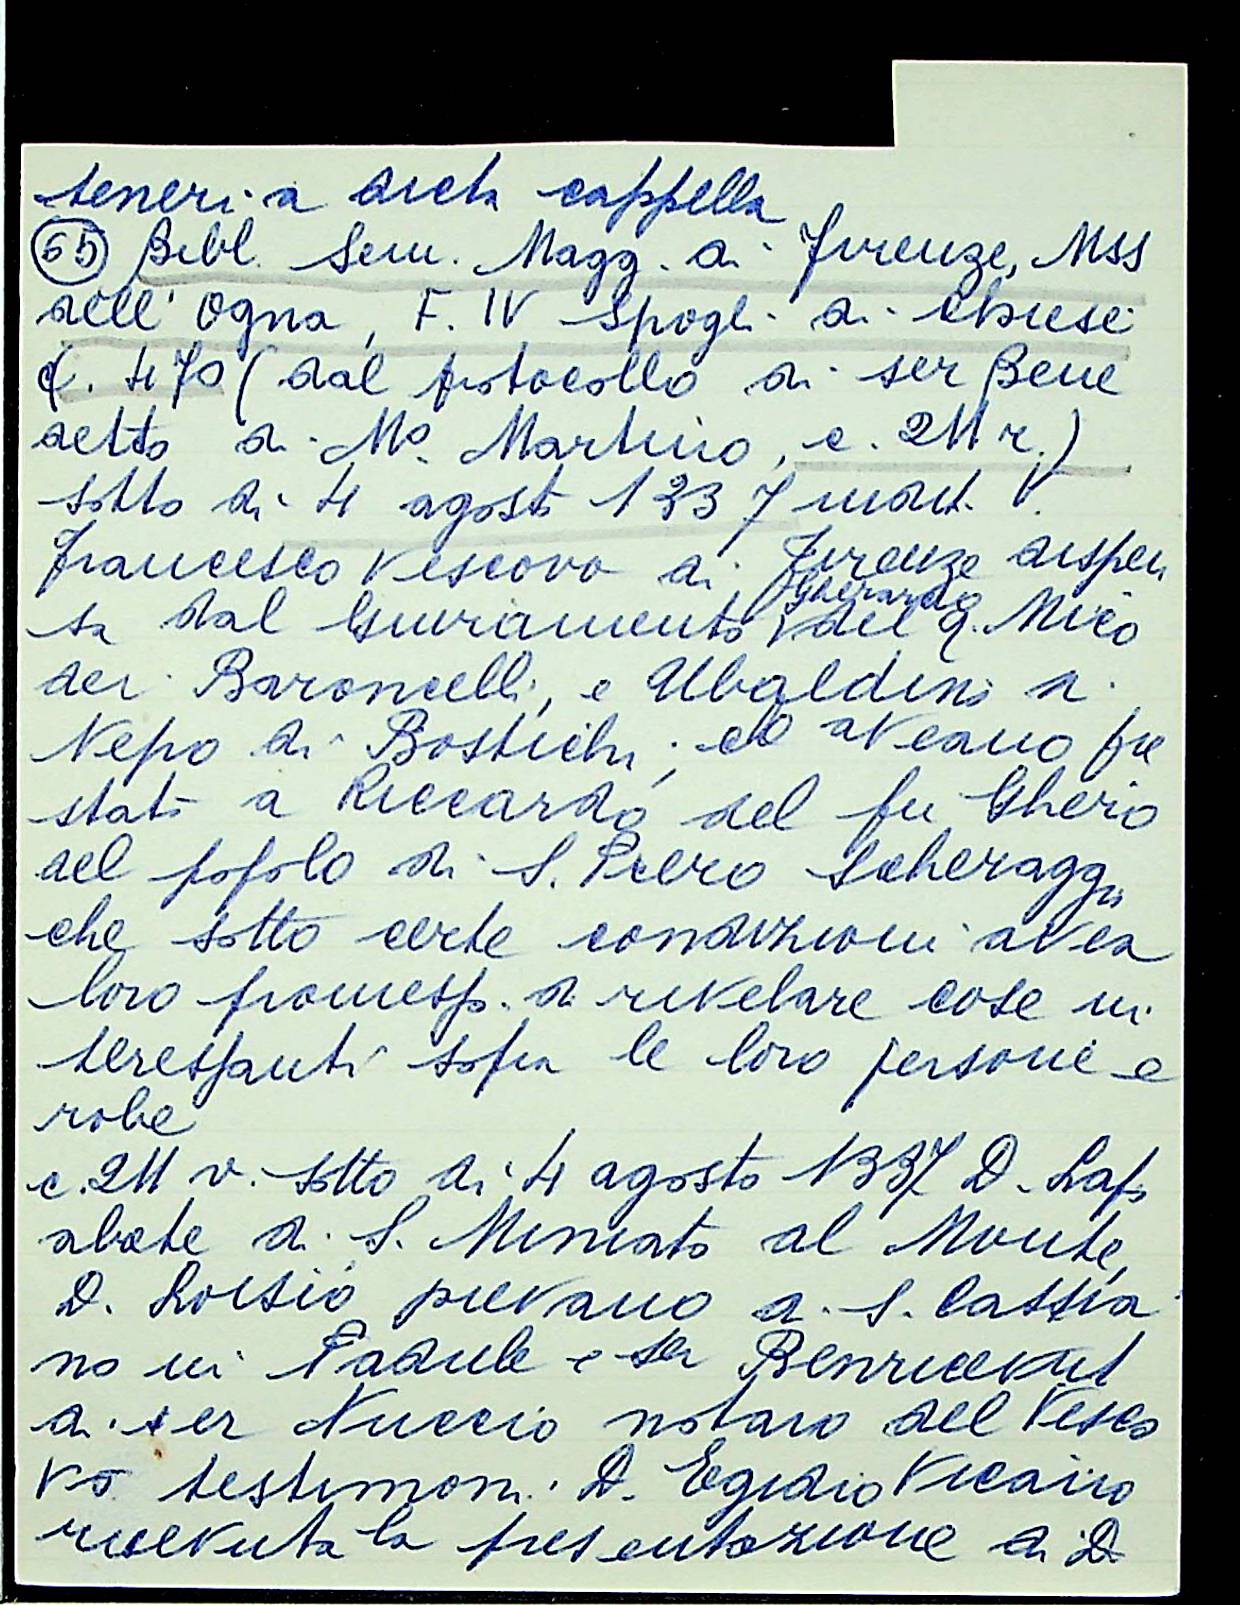 teneri a dicta cappella
65 Bibl. Sem. Magg. di Firenze, MSS
dell' Ogna, F. IV Spogli di chiese
c. 470 (dal protocollo di ser Bene
detto di Mº Martino, c. 211 r.)
sotto di 4 agosto 1337 indict. V.
Francesco Vescovo di Firenze dispen
sa dal Giuramento Gherardo del q. Mico
dei Baroncelli, e Ubaldino a
Nepo di Bostichi, ed aveano pre
stato a Riccardo del fu Gherio
del popolo di S. Piero Scheraggi
che sotto certe condizioni avea
loro promesso di rivelare cose in
teressanti sopra le loro persone e
robe
c. 211 v. sotto di 4 agosto 1337 D. Lapo
abate di S. Miniato al Monte,
D. Loisio pievano a S. Cassia
no in Padule e ser Benricevut
di ser Nuccio notaro del Vesco
vo testimoni. D. Egidio Vicario
ricevuta la presentazione di D